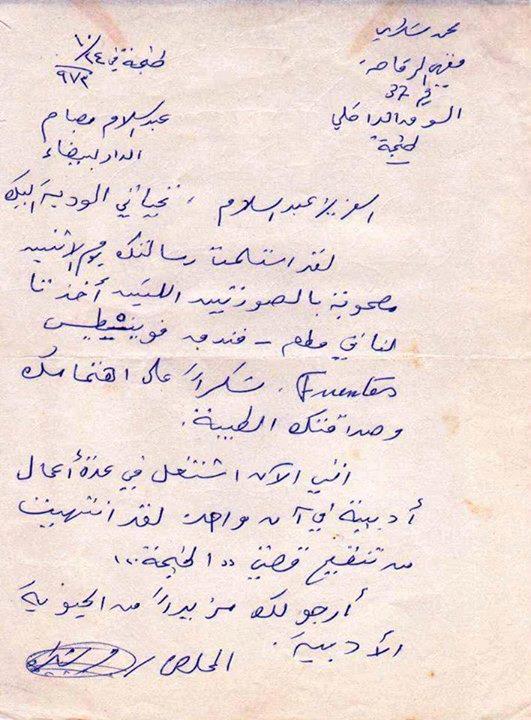 محمد شكري
مقهى الرقاصة
رقم 37
السوق الداخلي
طنجة
طنجة في 24/10
972
عبد السلام مصباح
الدار البيضاء
العزيز عبد السلام، تحياتي الودية إليك
لقد استلمت رسالتك يوم الاثنين
مصحوبة بالصورتين اللتين أخذتا
لنا في مطعم - فندق فوينطيس
Fuentes، شكرا على اهتمامك
وصداقتك الطيبة.
انني الآن اشتغل في عدة أعمال
أدبية في آن واحد. لقد انتهيت
من تنقيح قصتي "الخيمة"..
أرجو لك مزيدا من الحيوية
الأدبية.
المخلص /